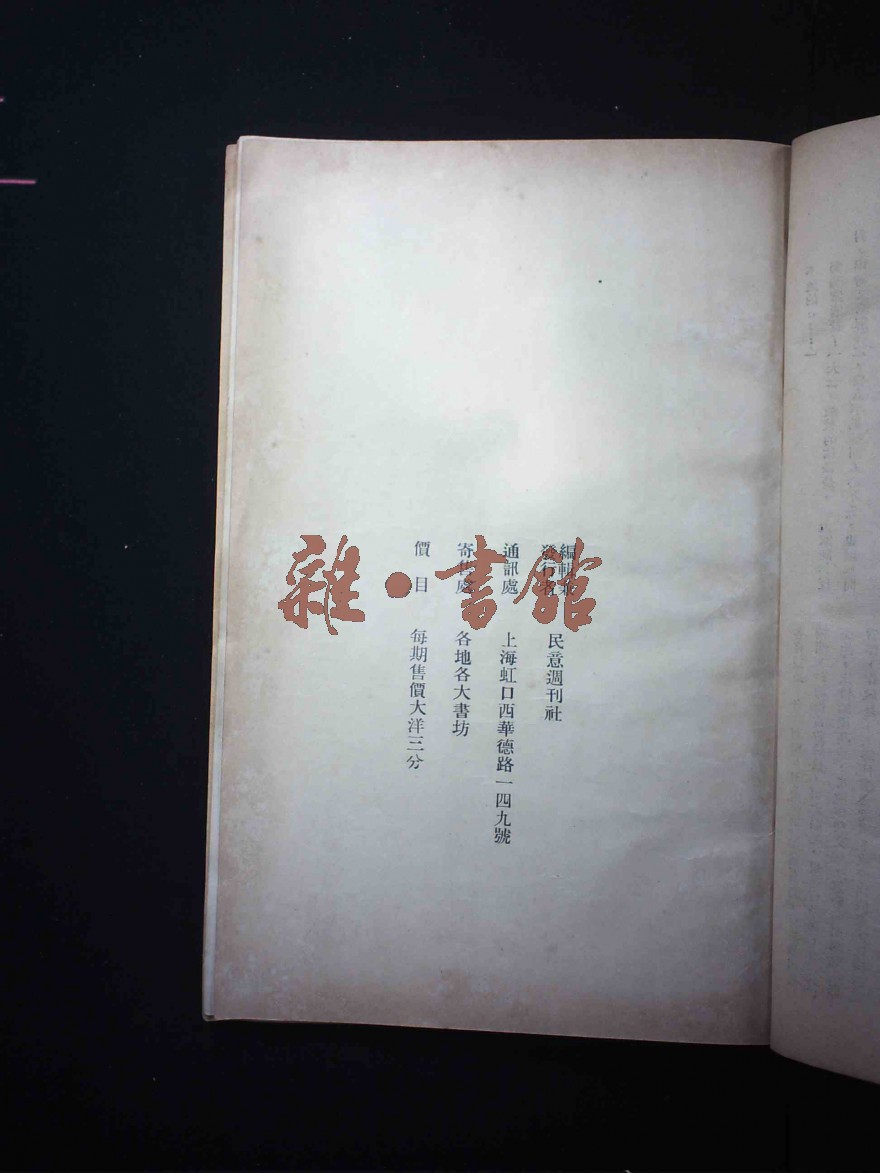 編輯兼
發行者 民意週刊社
通訊處 上海虹口西華德路一四九號
寄售處 各地各大書坊
價目 每期售價大洋三分
雜·書館